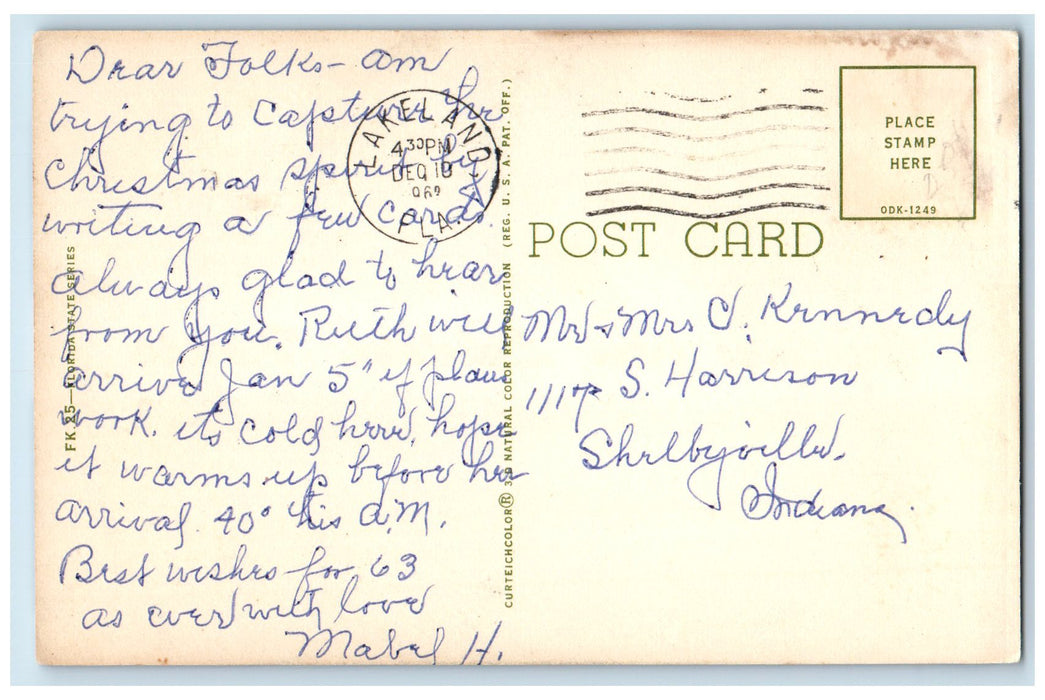 Dear Folks - am
trying to capture the
Christmas spirit by
writing a few cards.
Always glad to hear
from you. Ruth will
arrive Jan 5" if plans
work. its cold here, hope
it warms up before her
arrival. 40° this A.M.
Best wishes for 63
as ever with love
Mabel H.
FK.25—FLORIDA STATE SERIES
LAKELAND
4 30 PM
DEC 10
962
FLA.
CURTEICHCOLOR® 3-D NATURAL COLOR REPRODUCTION (REG. U. S. A. PAT. OFF.)
PLACE
STAMP
HERE
ODK-1249
POST CARD
Mr & Mrs C. Kennedy
1117 S. Harrison
Shelbyville.
Indiana.